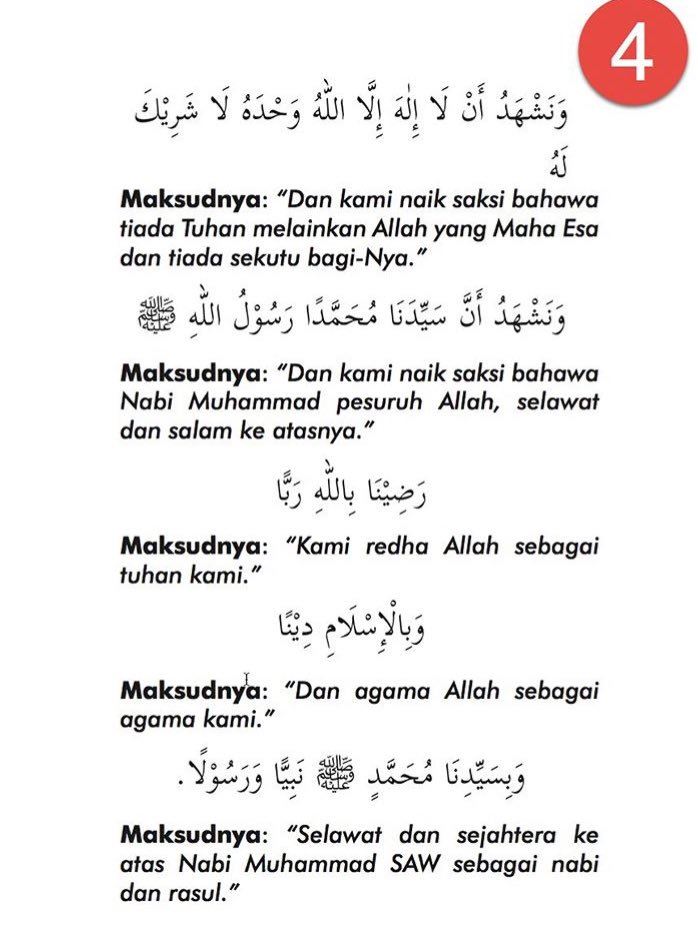 4
وَنَشْهَدُ أَنْ لَا إِلٰهَ إِلَّا اللّٰهُ وَحْدَهُ لَا شَرِيْكَ
لَهُ
Maksudnya: “Dan kami naik saksi bahawa
tiada Tuhan melainkan Allah yang Maha Esa
dan tiada sekutu bagi-Nya.”
وَنَشْهَدُ أَنَّ سَيِّدَنَا مُحَمَّدًا رَسُوْلُ اللّٰهِ ﷺ
Maksudnya: “Dan kami naik saksi bahawa
Nabi Muhammad pesuruh Allah, selawat
dan salam ke atasnya.”
رَضِيْنَا بِاللّٰهِ رَبًّا
Maksudnya: “Kami redha Allah sebagai
tuhan kami.”
وَبِالْإِسْلَامِ دِيْنًا
Maksudnya: “Dan agama Allah sebagai
agama kami.”
وَبِسَيِّدِنَا مُحَمَّدٍ ﷺ نَبِيًّا وَرَسُوْلًا.
Maksudnya: “Selawat dan sejahtera ke
atas Nabi Muhammad SAW sebagai nabi
dan rasul.”